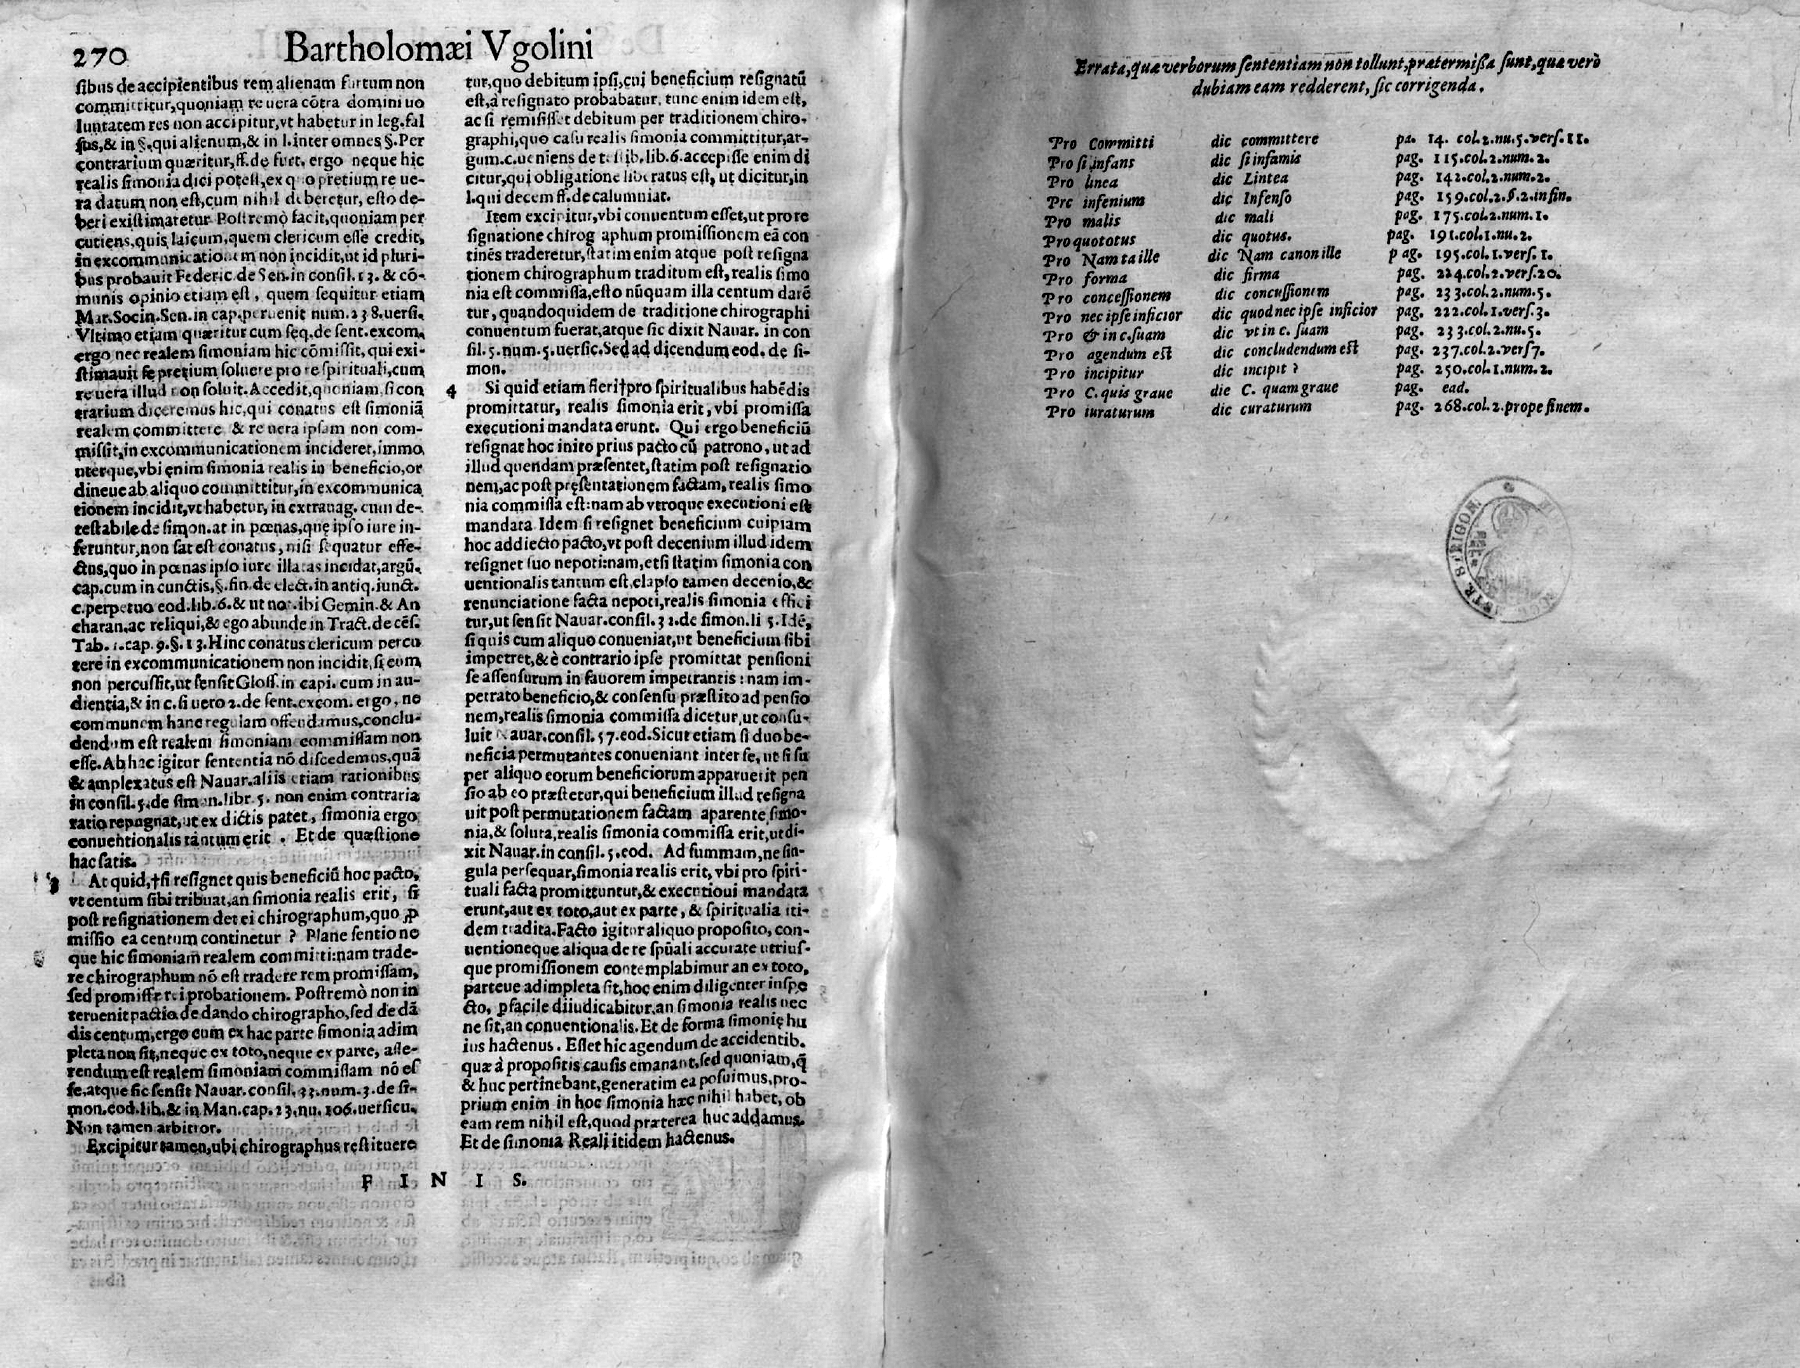 270 Bartholomæi Vgolini
sibus de accipientibus rem alienam furtum non
committitur,quoniam re uera cõtra domini uo
luntatem res non accipitur,vt habetur in leg.fal
sus,& in §.qui alienum,& in l.inter omnes §. Per
contrarium quæritur,ff. de furt. ergo neque hic
realis simonia dici potest,ex quo pretium re ue-
ra datum non est,cum nihil deberetur, esto de-
beri existimaretur. Postremò facit,quoniam per
cutiens,quis laicum,quem clericum esse credit,
in excommunicationem non incidit,ut id pluri-
bus probauit Federic.de Sen.in consil.13. & cõ-
munis opinio etiam est, quem sequitur etiam
Mar.Socin.Sen.in cap.peruenit num.238.uersi.
Vltimo etiam quæritur cum seq.de sent.excom.
ergo nec realem simoniam hic cõmissit, qui exi-
stimauit se pretium soluere pro re spirituali,cum
re uera illud non soluit. Accedit,quoniam,si con
trarium diceremus hic,qui conatus est simoniã
realem committere & re uera ipsam non com-
missit,in excommunicationem incideret,immo
uterque,vbi enim simonia realis in beneficio,or
dineue ab aliquo committitur,in excommunica
tionem incidit,vt habetur,in extrauag. cum de-
testabile de simon.at in pœnas,quę ipso iure in-
feruntur,non sat est conatus, nisi sequatur effe-
ctus,quo in pœnas ipso iure illatas incidat,argũ.
cap.cum in cunctis,§.fin.de elect.in antiq.iunct.
c.perpetuo eod.lib.6.& ut not.ibi Gemin.& An
charan.ac reliqui,& ego abunde in Tract.de cẽs.
Tab.1.cap.9.§.13.Hinc conatus clericum percu
tere in excommunicationem non incidit,si eum
non percussit,ut sensit Gloss.in capi. cum in au-
dientia,& in c.si uero 2.de sent.excom. ergo, ne
communem hanc regulam offendamus,conclu-
dendum est realem simoniam commissam non
esse. Ab hac igitur sententia nõ discedemus,quã
& amplexatus est Nauar.aliis etiam rationibus
in consil.5.de simon.libr.5. non enim contraria
ratio repugnat,ut ex dictis patet, simonia ergo
conuentionalis tantum erit. Et de quæstione
hac satis.
At quid,†si resignet quis beneficiũ hoc pacto,
vt centum sibi tribuat,an simonia realis erit, si
post resignationem det ei chirographum,quo ꝓ
missio ea centum continetur? Plane sentio ne
que hic simoniam realem committi:nam trade-
re chirographum nõ est tradere rem promissam,
sed promissæ rei probationem. Postremò non in
teruenit pactio de dando chirographo,sed de dã
dis centum,ergo cum ex hac parte simonia adim
pleta non sit,neque ex toto,neque ex parte, asse-
rendum est realem simoniam commissam nõ es
se,atque sic sensit Nauar. consil.33.num.3.de si-
mon.eod.lib.& in Man.cap.23.nu.106.uersicu.
Non tamen arbitror.
Excipitur tamen,ubi chirographus restituere
tur,quo debitum ipsi,cui beneficium resignatũ
est,à resignato probabatur, tunc enim idem est,
ac si remisisset debitum per traditionem chiro-
graphi,quo casu realis simonia committitur,ar-
gum.c.ueniens de lib.lib.6.accepisse enim di
citur,qui obligatione liberatus est, ut dicitur,in
l.qui decem ff.de calumniat.
Item excipitur,vbi conuentum esset,ut pro re
signatione chirographum promissionem eã con
tinẽs traderetur,statim enim atque post resigna
tionem chirographum traditum est, realis simo
nia est commissa,esto nũquam illa centum darẽ
tur, quandoquidem de traditione chirographi
conuentum fuerat,atque sic dixit Nauar. in con
sil.5.num.5.uersic.Sed ad dicendum eod. de si-
mon.
4 Si quid etiam fieri†pro spiritualibus habẽdis
promittatur, realis simonia erit, vbi promissa
executioni mandata erunt. Qui ergo beneficiũ
resignat hoc inito prius pacto cũ patrono, ut ad
illud quendam præsentet,statim post resignatio
nem,ac post pręsentationem factam, realis simo
nia commissa est:nam ab vtroque executioni est
mandata. Idem si resignet beneficium cuipiam
hoc addiecto pacto,vt post decenium illud idem
resignet suo nepoti:nam,etsi statim simonia con
uentionalis tantum est,elapso tamen decenio,&
renunciatione facta nepoti,realis simonia effici
tur,ut sensit Nauar.consil.32.de simon.li 5.Idẽ,
si quis cum aliquo conueniat,ut beneficium sibi
impetret,& è contrario ipse promittat pensioni
se assensurum in fauorem impetrantis : nam im-
petrato beneficio,& consensu præstito ad pensio
nem,realis simonia commissa dicetur,ut consu-
luit Nauar.consil.57.eod.Sicut etiam si duo be-
neficia permutantes conueniant inter se, ut si su
per aliquo eorum beneficiorum apparuerit pen
sio ab eo præstetur,qui beneficium illud resigna
uit post permutationem factam aparente simo-
nia,& soluta,realis simonia commissa erit,ut di-
xit Nauar.in consil.5.eod. Ad summam,ne sin-
gula persequar,simonia realis erit, vbi pro spiri-
tuali facta promittuntur,& executioui mandata
erunt,aut ex toto,aut ex parte, & spiritualia iti-
dem tradita.Facto igitur aliquo proposito, con-
uentioneque aliqua de re spũali accurate utrius-
que promissionem contemplabimur an ex toto,
parteue adimpleta sit,hoc enim diligenter inspe
cto, ꝑfacile diiudicabitur,an simonia realis nec
ne sit,an conuentionalis. Et de forma simonię hu
ius hactenus. Esset hic agendum de accidentib.
quæ à propositis causis emanant,sed quoniam,q̃
& huc pertinebant,generatim ea posuimus,pro-
prium enim in hoc simonia hæc nihil habet, ob
eam rem nihil est,quod præterea huc addamus.
Et de simonia Reali itidem hactenus.
F I N I S.
Errata,quæ verborum sententiam non tollunt,prætermissa sunt,quæ verò
dubiam eam redderent, sic corrigenda.
Pro Committi dic committere pa. 14. col.2.nu.5.vers.11.
Pro si infans dic si infamis pag. 115.col.2.num.2.
Pro linea dic Lintea pag. 142.col.2.num.2.
Pre infenium dic Infenso pag. 159.col.2.§.2.in fin.
Pro malis dic mali pag. 175.col.2.num.1.
Pro quototus dic quotus. pag. 191.col.1.nu.2.
Pro Nam ta ille dic Nam canon ille pag. 195.col.1.vers.1.
Pro forma dic firma pag. 224.col.2.vers.20.
Pro concessionem dic concussionem pag. 233.col.2.num.5.
Pro nec ipse inficior dic quod nec ipse inficior pag. 222.col.1.vers.3.
Pro & in c.suam dic vt in c. suam pag. 233.col.2.nu.5.
Pro agendum est dic concludendum est pag. 237.col.2.vers7.
Pro incipitur dic incipit ? pag. 250.col.1.num.2.
Pro C. quis graue die C. quam graue pag. ead.
Pro iuraturum dic curaturum pag. 268.col.2.prope finem.